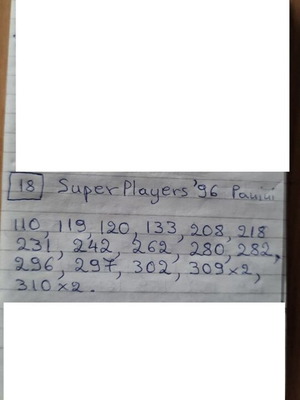 18 Super Players '96 Panini
110, 119, 120, 133, 208, 218
231, 242, 262, 280, 282,
296, 297, 302, 309×2,
310×2.